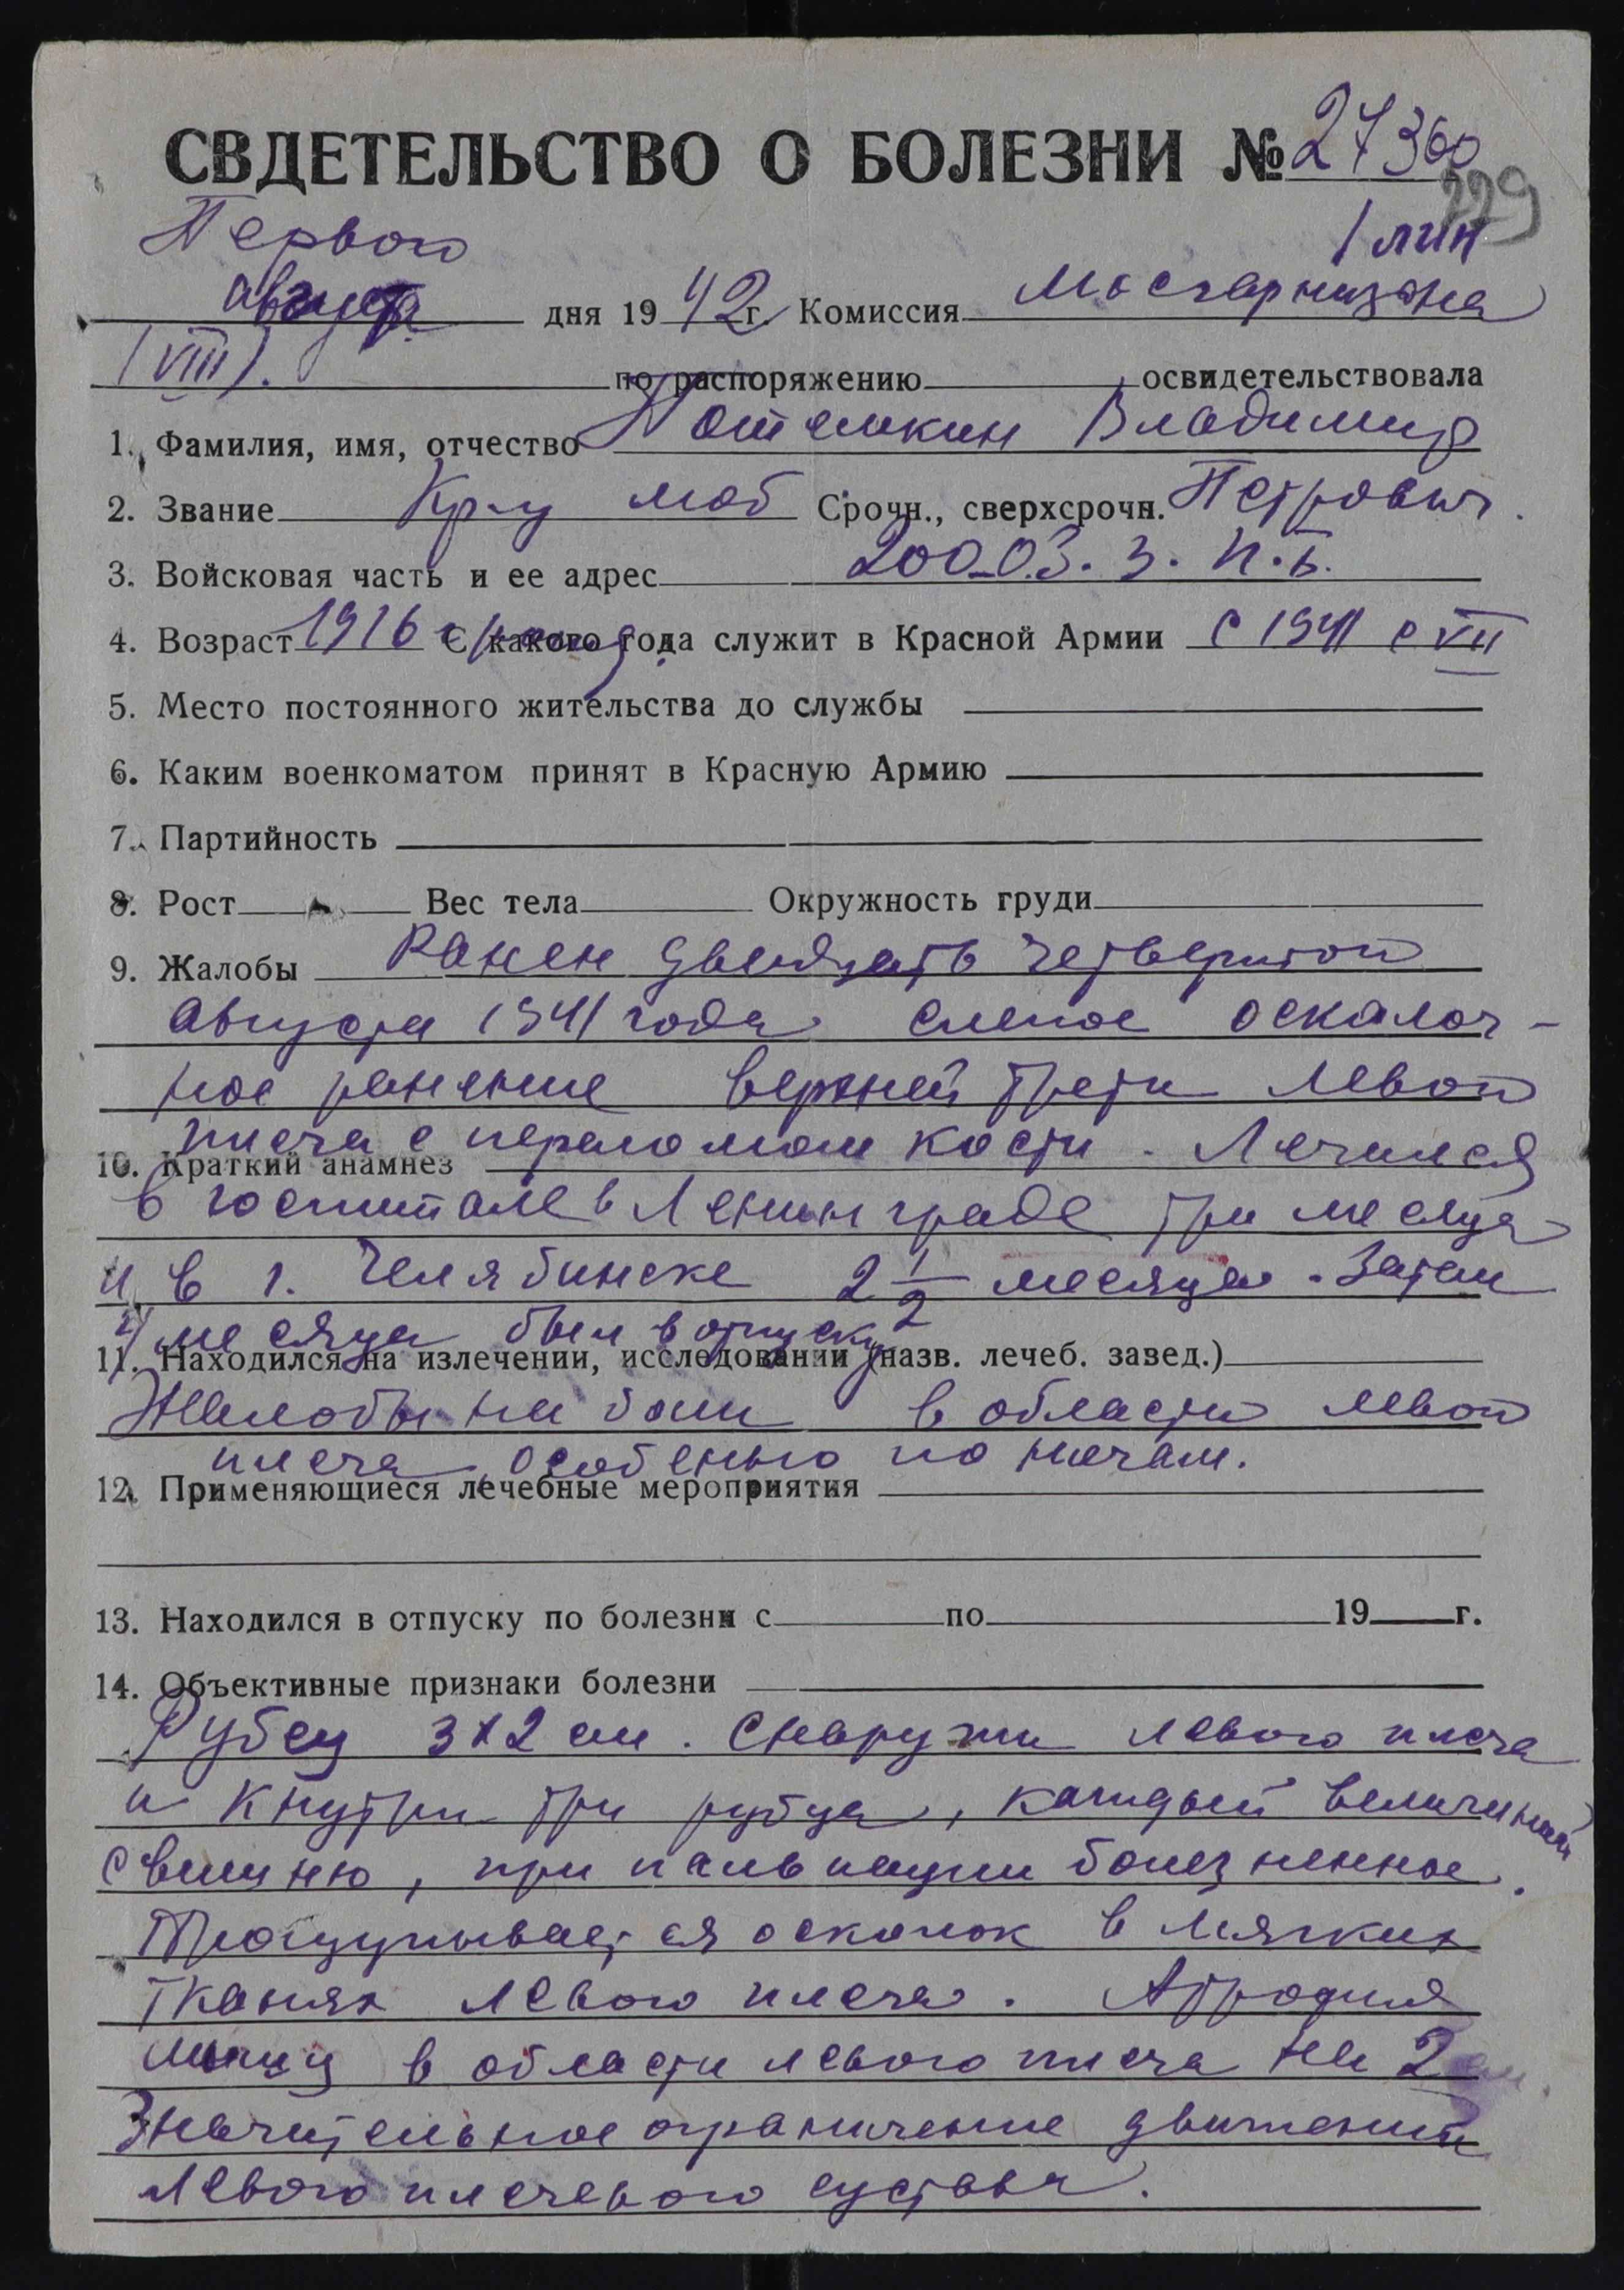 СВДЕТЕЛЬСТВО О БОЛЕЗНИ № 27360
229
Первого
1 лин
августа дня 1942 г. Комиссия Мосгарнизона
(VIII). по распоряжению освидетельствовала
1. Фамилия, имя, отчество Потемкин Владимир
2. Звание Кр-ц моб Срочн., сверхсрочн. Петрович.
3. Войсковая часть и ее адрес 200 О.З.З.П.Б.
4. Возраст 1916 С какого года служит в Красной Армии с 1941 с VII
5. Место постоянного жительства до службы
6. Каким военкоматом принят в Красную Армию
7. Партийность
8. Рост Вес тела Окружность груди
9. Жалобы Ранен двенадцать четвертого
августа 1941 года слепое осколоч-
ное ранение верхней трети левого
плеча с переломом кости. Лечился
10. Краткий анамнез
в госпитале в Ленинграде три месяца
и в г. Челябинске 2 1/2 месяца. Затем
4 месяца был в отпуску
11. Находился на излечении, исследовании (назв. лечеб. завед.)
Жалобы на боли в области левого
плеча, особенно по ночам.
12. Применяющиеся лечебные мероприятия
13. Находился в отпуску по болезни с по 19 г.
14. Объективные признаки болезни
Рубец 3х2 см. снаружи левого плеча
и кнутри три рубца, каждый величиной
с вишню, при пальпации болезненные.
Прощупывается осколок в мягких
тканях левого плеча. Атрофия
мышц в области левого плеча на 2 см.
Значительное ограничение движений
левого плечевого сустава.